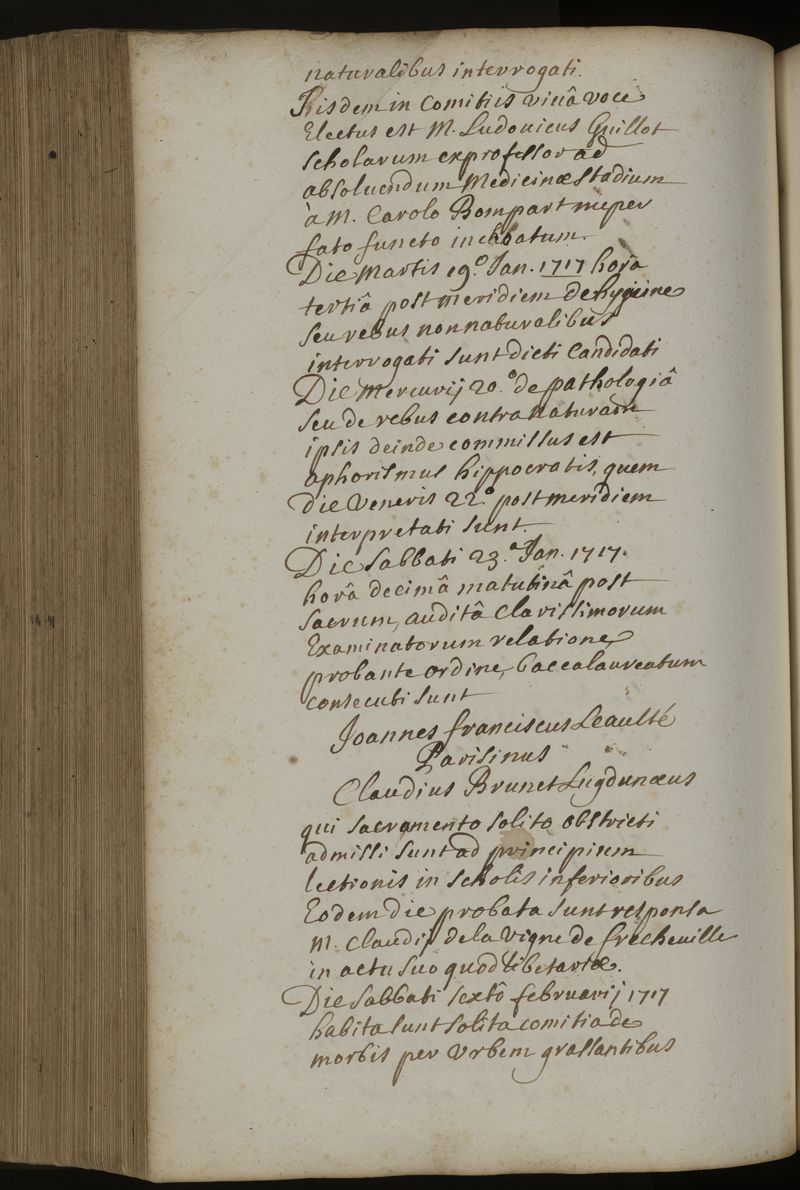 naturalibus interrogati.
Iisdem in Comitiis vivâ voce
Electus est M. Ludovicus Guillot
scholarum exprofessor ad
absoluendum Medicinæ Stadium
à M. Carolo Bompart nuper
fato functo inchoatum.
Die Martis 19.° Jan. 1717 horâ
tertiâ post meridiem de hygieine
seu rebus non naturalibus
interrogati sunt dicti Candidati
Die Mercurij 20.° de pathologiâ
seu de rebus contra naturam
ipsis deinde commissus est
aphorismus hippocratis, quem
die Veneris 22.° post meridiem
interpretati sunt.
Die Sabbati 23.° Jan. 1717.
horâ decimâ matutinâ post
sacrum, auditâ Clarissimorum
Examinatorum relatione,
probante ordine, baccalaureatum
consecuti sunt
Joannes franciscus Leaulté
Parisinus
Claudius Brunet Lugdunæus
qui sacramento solito obstricti
admissi sunt ad principium
lectionis in scholis inferioribus
Eodem die probata sunt responsa
M. Claudij de la Vigne de frecheville
in actu suo quodlibetariæ.
Die Sabbati sextô februarij 1717
habita sunt solita comitia de
morbis per Urbem grassantibus